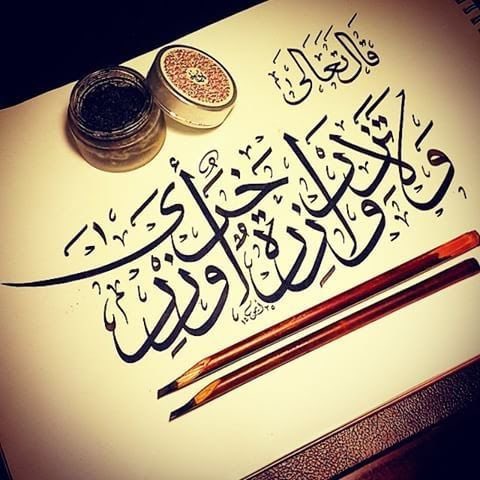 قَالَ تَعَالَى
وَلَا تَزِرُ وَازِرَةٌ وِزْرَ أُخْرَى